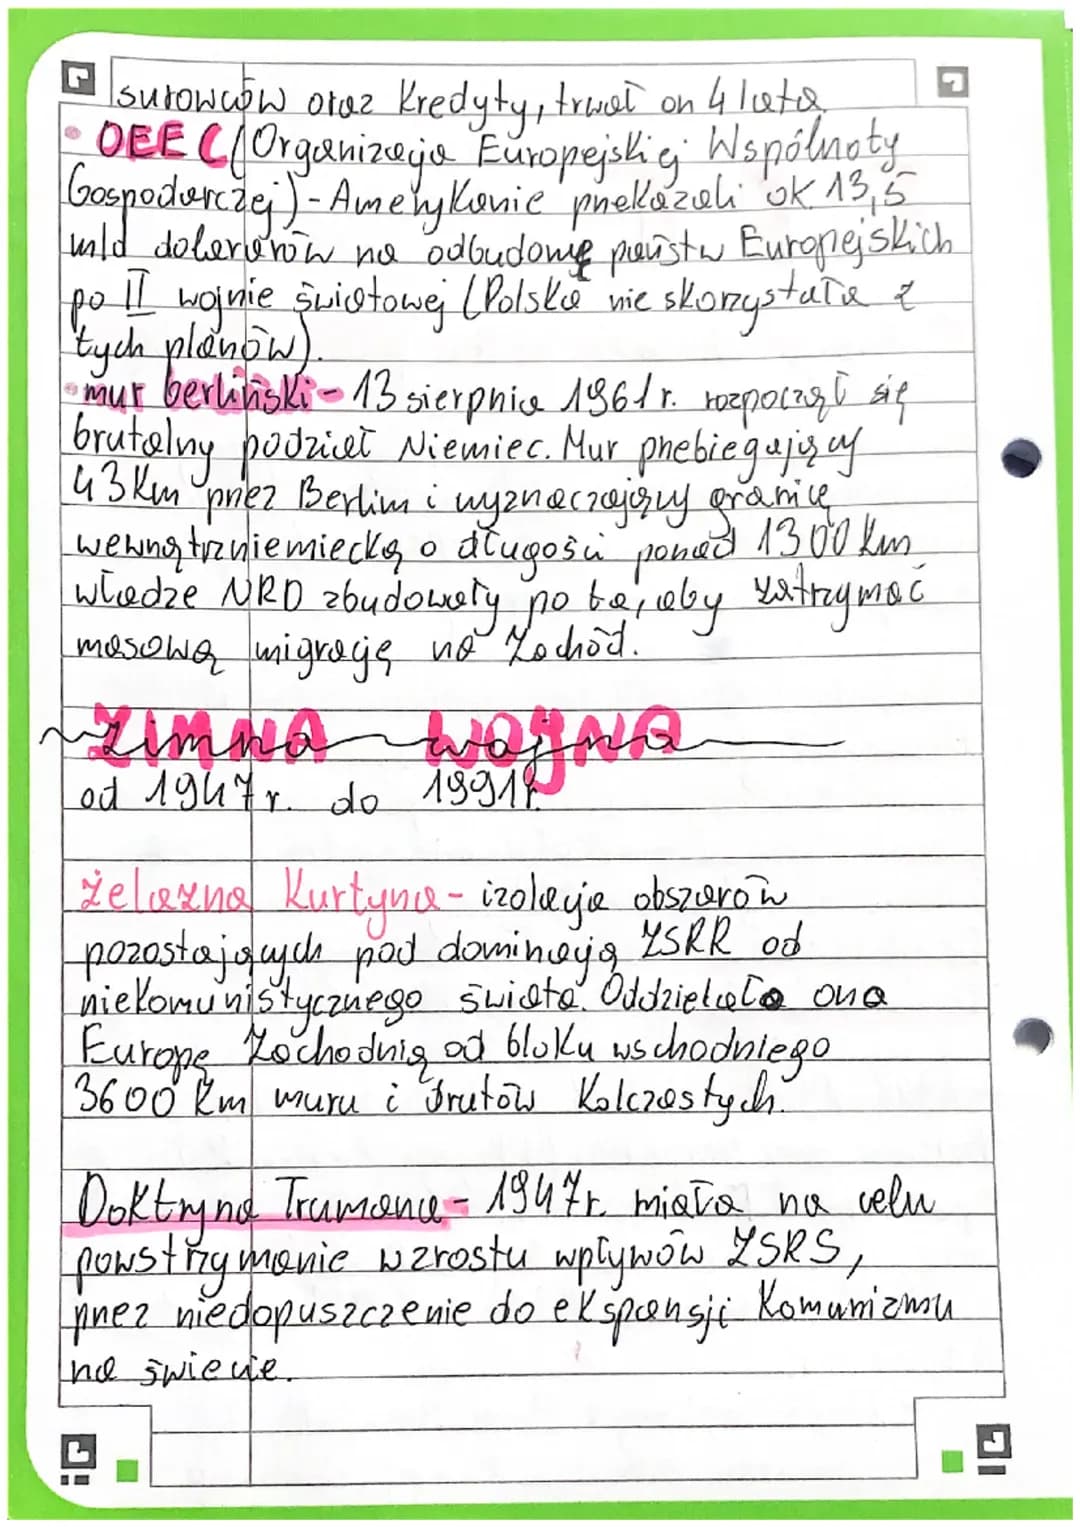 surowców oraz kredyty, trwał on 4 lata
• OEEC (Organizacja Europejskiej Wspólnoty
Gospodarczej) - Amerykanie przekazali ok 13,5
mld dolarerów na odbudowę państw Europejskich
po II wojnie światowej (Polska nie skorzystała z
tych planów).
• mur berliński - 13 sierpnia 1961 r. rozpoczął się
brutalny podział Niemiec. Mur przebiegający
43 km przez Berlin i wyznaczający granicę
wewnątrzniemiecką o długości ponad 1300 km
władze NRD zbudowały po to, aby zatrzymać
masową migrację na Zachód.
ZIMNA WOJNA
od 1947 r. do 1991 r.
żelazna kurtyna - izolacja obszarów
pozostających pod dominacją ZSRR od
niekomunistycznego świata. Oddzielała ona
Europę Zachodnią od bloku wschodniego
3600 km muru i drutów kolczastych.
Doktryna Trumana - 1947r. miała na celu
powstrzymanie wzrostu wpływów ZSRS,
przez niedopuszczenie do ekspansji komunizmu
na świecie.